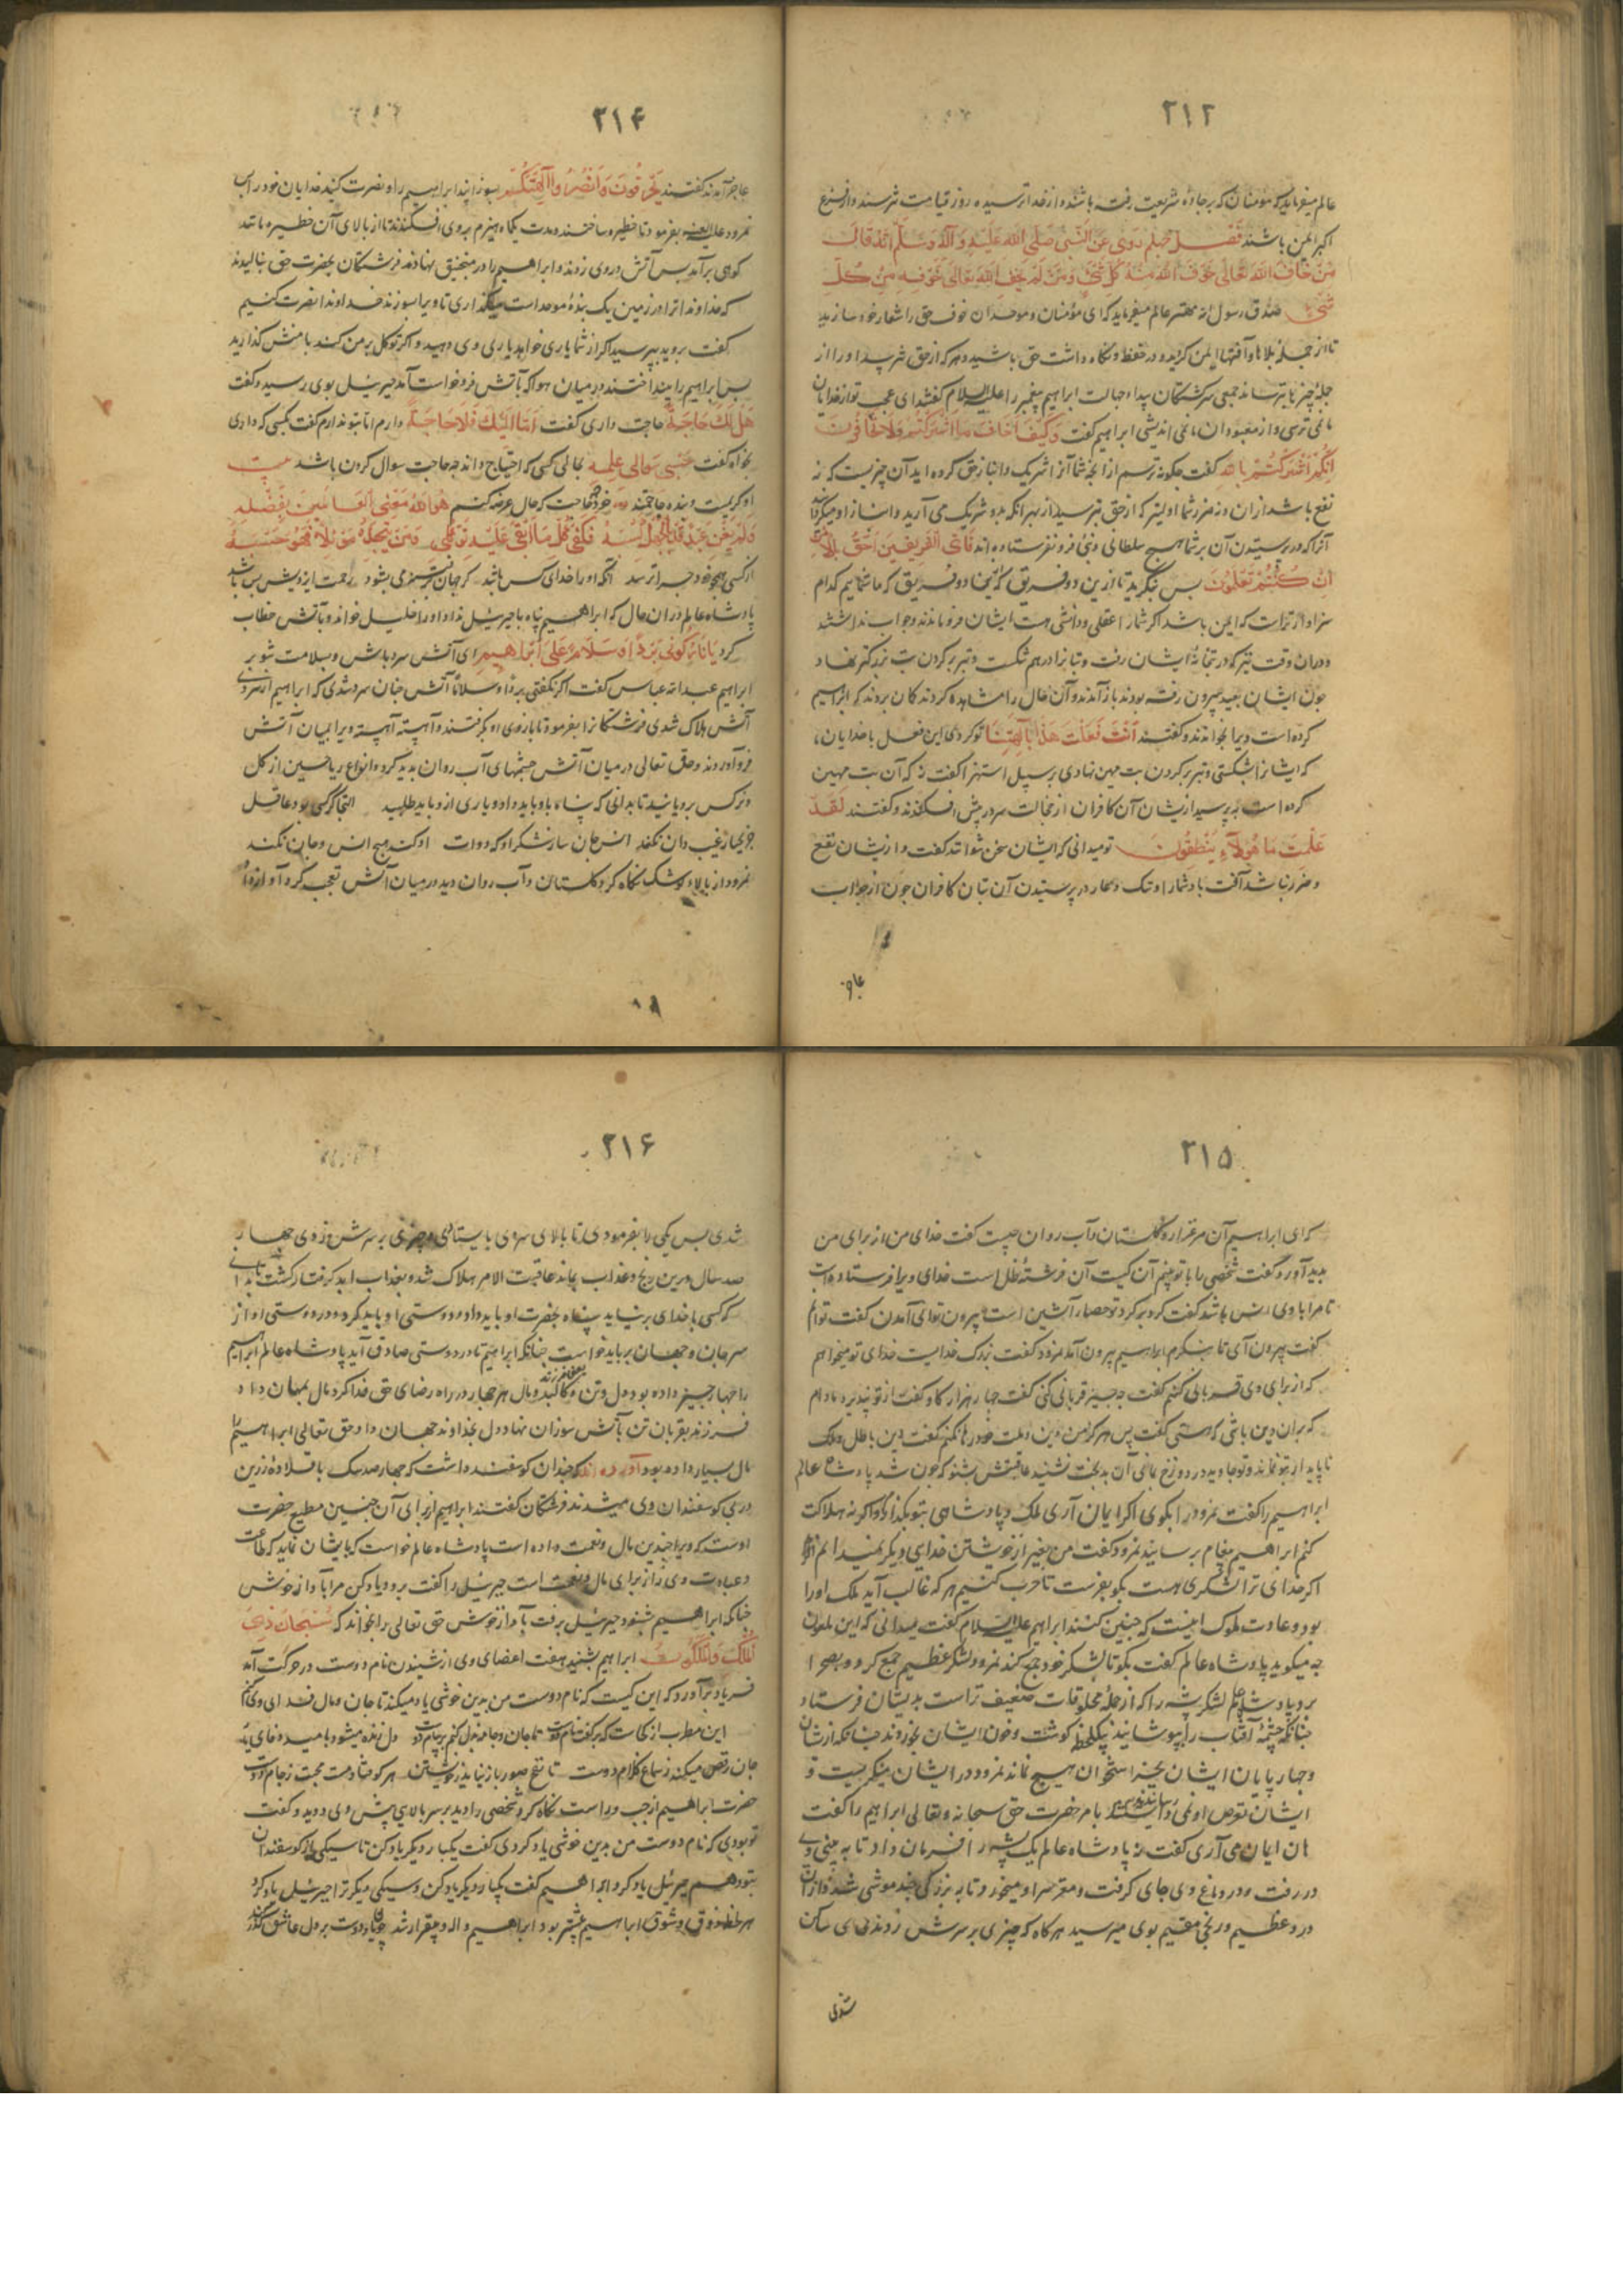 ۲۱۲
عالم میفرماید که مؤمنان که بر جادهٔ شریعت رفته باشند و از خدا ترسیده روز قیامت نترسند و از فزع
اکبر ایمن باشند فصل چهلم روی عن النبی صلی الله علیه وآله وسلم انه قال
من خاف الله تعالی خوف الله منه کل شیء ومن لم یخف الله تعالی خوفه من کل
شیء صدق رسول الله مهتر عالم میفرماید که ای مؤمنان و موحدان خوف حق را شعار خود سازید
تا از جمله بلاها و آفتها ایمن گردید و در حفظ و نگاه داشت حق باشید و هر که از حق نترسد او را از
جمله چیزها بترساند جمعی سرگشتگان بیداء جهالت ابراهیم پیغمبر را علیه السلام گفتند ای عجب تو از خدایان
ما نمی ترسی و از معبودان ما نمی اندیشی ابراهیم گفت وکیف اخاف ما اشرکتم ولا تخافون
انکم اشرکتم بالله گفت چگونه ترسم از آنچه شما آنرا شریک و انباز حق کرده اید آن چیزیست که نه
نفع باشد ازان و نه ضرر شما اولیتر که از حق بترسید از بهر آنکه بدو شریک می آرید و انباز او میگردانید
آنرا که در پرستیدن آن بر شما هیچ سلطانی و نبئی فرو نفرستاده اند فای الفریقین احق بالامن
ان کنتم تعلمون پس بنگرید تا ازین دو فریق که یکجا دو فریق که ما شمائیم کدام
سزاوارترست که ایمن باشد اگر شما را عقلی و دانشی هست ایشان فرو ماندند و جواب نداشتند
و دران وقت نیز که در بتخانهٔ ایشان رفت و بتانرا در هم شکست و تبر بر گردن بت بزرگتر نهاد
چون ایشان بعید بیرون رفته بودند باز آمدند و آن حال را مشاهده کردند گمان بردند که ابراهیم
کرده است ویرا بخواندند و گفتند انت فعلت هذا بآلهتنا تو کردی این فعل با خدایان ما
که ایشانرا شکستی و تبر بر گردن بت مهین نهادی بر سبیل استهزا گفت نه که آن بت مهین
کرده است بپرسید ازیشان آن کافران از خجالت سر در پیش افکندند و گفتند لقد
علمت ما هؤلاء ینطقون تو میدانی که ایشان سخن نتوانند گفت و ازیشان نفع
و ضرر نباشد آفت باد شما را و ننگ و عار در پرستیدن آن بتان کافران چون از جواب
عاجز
۲۱۴
عاجز آمدند گفتند حرقوه وانصروا آلهتکم بسوزانید ابراهیم را و نصرت کنید خدایان خود را پس
نمرود علیه اللعنه بفرمود تا حظیره ساختند و مدت یکماه هیزم بروی افکندند تا از بالای آن حظیره مانند
کوهی برآمد پس آتش در وی زدند و ابراهیم را در منجنیق نهادند فرشتگان بحضرت حق بنالیدند
که خداوندا ترا در زمین یک بندهٔ موحد است میگذاری تا ویرا بسوزند خداوندا نصرت کنیم
گفت بروید بپرسید اگر از شما یاری خواهد یاری وی دهید و اگر توکل بر من کند با منش گذارید
پس ابراهیم را بینداختند در میان هوا که بآتش فرو خواست آمد جبرئیل بوی رسید و گفت
هل لک حاجة حاجت داری گفت اما الیک فلا حاجة دارم اما بتو ندارم گفت بکسی که داری
بخواه گفت حسبی سؤالی علمه بحالی کسی که احتیاج داند چه حاجت سوال کردن باشد بیت
او کریمست و بنده حاجتمند خود چه حاجت که حال عرضه کنیم هو الله مغنی العالمین بفضله
از کسی هیچ خود چرا ترسد آنکه او را خدای کس باشد گر جهان پر ستیز می بشود رحمت ایزدیش بس باشد
پادشاه عالم دران حال که ابراهیم پناه با جبرئیل نداد او را خلیل خواند و بآتش خطاب
کرد یا نار کونی بردا وسلاما علی ابراهیم ای آتش سرد باش و سلامت شو بر
ابراهیم عبدالله عباس گفت اگر نگفتی بردا وسلاما آتش چنان سرد شدی که ابراهیم از سردی
آتش هلاک شدی فرشتگانرا بفرمود تا بازوی او بگرفتند و آهسته آهسته ویرا بمیان آتش
فرو آوردند و حق تعالی در میان آتش چشمهای آب روان پدید کرد و انواع ریاحین از گل
و نرگس برویانید تا بدانی که پناه با او باید داد و یاری ازو باید طلبید التجا گر کسی بود عاقل
نمرود از بالاء کوشک نگاه کرد گلستان و آب روان دید در میان آتش تعجب کرد آواز داد
۱۹
۲۱۵
که ای ابراهیم آن مرغزار و گلستان و آب روان چیست گفت خدای من از برای من
پدید آورد گفت شخصی را با تو بینم آن کیست آن فرشتهٔ ظل است خدای ویرا فرستاده است
تا مرا با وی انس باشد گفت گرد بر گرد تو حصار آتشین است بیرون توانی آمدن گفت توانم
گفت بیرون آی تا بنگرم ابراهیم بیرون آمد نمرود گفت بزرگ خدایست خدای تو میخواهم
که از برای وی قربانی کنم گفت چه چیز قربانی کنی گفت چهار هزار گاو گفت از تو نپذیرد مادام
که بران دین باشی که هستی گفت پس هرگز من دین و ملت خود رها نکنم گفت دین باطل و ملک
ناپایدار بتو نماند و تو جاوید در دوزخ بمانی آن بدبخت نشنید عاقبتش بشنو که چون شد پادشاه عالم
ابراهیم را گفت نمرود را بگوی اگر ایمان آری ملک و پادشاهی بتو بگذارم و اگر نه هلاکت
کنم ابراهیم پیغام برسانید نمرود گفت من بغیر از خویشتن خدای دیگر نمیدانم
اگر خدای ترا لشکری هست بگو بفرست تا حرب کنیم هر که غالب آید ملک او را
بود و عادت ملوک اینست که چنین کنند ابراهیم علیه السلام گفت میدانی که این ملعون
چه میگوید پادشاه عالم گفت بگو تا لشکر خود جمع کند نمرود لشکر عظیم جمع کرد و بصحرا
برد پادشاه عالم لشکر پشه را که از جملهٔ مخلوقات ضعیف تر است بدیشان فرستاد
چنانکه چشمهٔ آفتاب را بپوشانید بیکلحظه گوشت و خون ایشان بخوردند چنانکه ازیشان
و چهارپایان ایشان بجز استخوان هیچ نماند نمرود در ایشان مینگریست و
ایشان تعرض او نمی رسانیدند بامر حضرت حق سبحانه و تعالی ابراهیم را گفت
هان ایمان می آری گفت نه پادشاه عالم یک پشه را فرمان داد تا به بینی وی
در رفت و در دماغ وی جای گرفت و مغز سر او میخورد تا به بزرگی چند موشی شد و ازان
درد عظیم و رنجی مقیم بوی میرسید هر گاه که چیزی بر سرش زدندی ساکن
شدی
۲۱۶
شدی پس یکی را بفرمودی تا بالای سر وی بایستادی و چیزی بر سرش زدی چهار
صد سال درین رنج و عذاب بماند عاقبت الامر هلاک شد و بعذاب ابد گرفتار گشت تا بدانی
که کسی با خدای بر نیاید پناه بحضرت او باید داد و دوستی او باید کرد و در دوستی او از
سر جان و جهان بر باید خواست چنانکه ابراهیم تا در دوستی صادق آید پادشاه عالم ابراهیم
را چهار چیز داده بود دل و تن و فرزند و مال هر چهار در راه رضای حق فدا کرد مال بمهمان داد
فرزند بقربان تن بآتش سوزان نهاد و دل بخداوند جهان داد و حق تعالی ابراهیم را
مال بسیار داده بود آورده اند که چندان گوسفند داشت که چهار صد سگ با قلادهٔ زرین
در پی گوسفندان وی میشدند فرشتگان گفتند ابراهیم از برای آن چنین مطیع حضرت
اوست که ویرا چندین مال و نعمت داده است پادشاه عالم خواست که بایشان نماید که طاعت
و عبادت وی نه از برای مال و نعمت است جبرئیل را گفت برو و یاد کن مرا بآواز خوش
چنانکه ابراهیم شنود جبرئیل برفت بآواز خوش حق تعالی را بخواند که سبحان ذی
الملک والملکوت ابراهیم بشنید هفت اعضای وی از شنیدن نام دوست در حرکت آمد
فریاد برآورد که این کیست که نام دوست من بدین خوشی یاد میکند تا جان و مال فدای وی کنم
این مطرب از کجاست که برگفت نام دوست تا جان و جامه بذل کنم بر پیام دوست دل زنده میشود بامید وفای یار
جان رقص میکند ز سماع کلام دوست تا نفخ صور باز نیاید ز خویشتن هر کو فتاد مست محبت ز جام دوست
حضرت ابراهیم از چپ و راست نگاه کرد شخصی را دید بر سر بالایی پیش وی دوید و گفت
تو بودی که نام دوست من بدین خوشی یاد کردی گفت یکبار دیگر یاد کن تا سیکی از گوسفندان
بتو دهم جبرئیل یاد کرد ابراهیم گفت یکبار دیگر یاد کن و سیکی دیگر ترا جبرئیل یاد کرد
هر لحظه ذوق و شوق ابراهیم بیشتر بود ابراهیم واله و بیقرار شد چو یاد دوست بر دل عاشق گذر کند